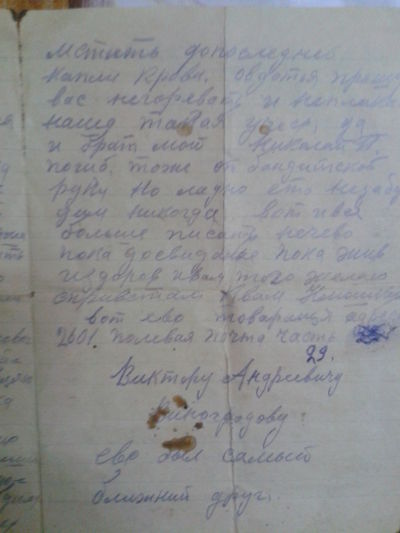 Мстить допоследней
капли крови. Овдотья прошу
вас негоревать и неплака
наша такая участ, да
и брат мой Николай П.
погиб тоже от бандитской
руки но ладно ето незабу
дим никогда вот и вся
больше писать нечево
пока досвидание пока жив
издоров ивам того желаю
сприветам квам
вот ево товарища адрес
2601 полевая почта часть
29.
Виктору Андреевичу
Виноградову
ево был самый
ближний друг.